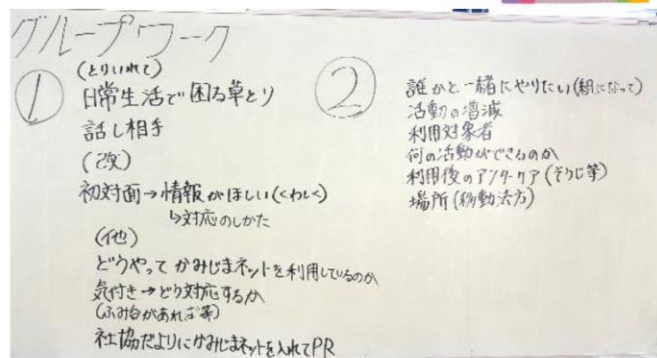 グループワーク
①
(とりいれて)
日常生活で困る草とり
話し相手
(改)
初対面→情報がほしい(くわしく)
↳対応のしかた
(他)
どうやってかみじまネットを利用しているのか
気付き→どう対応するか
(ふみ台があれば等)
社協だよりにかみじまネットを入れてPR
②
誰かと一緒にやりたい(組になって)
活動の増減
利用対象者
何の活動ができるのか
利用後のアフターケア(そうじ等)
場所(移動法方)